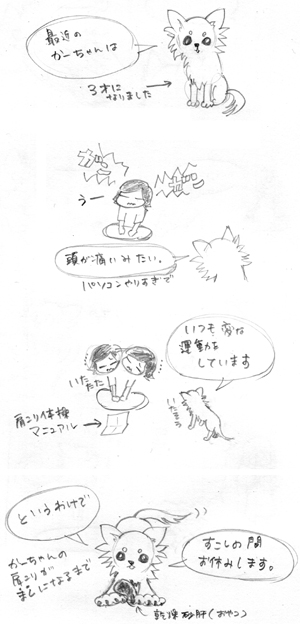 最近の
かーちゃんは
3才に
なりました
ガン
ガン
うー
頭が痛いみたい。
パソコンやりすぎで
いつも変な
運動を
しています
いたたた
肩こり体操
マニュアル
というわけで
かーちゃんの
肩こりが
ましになるまで
すこしの間
お休みします。
乾燥砂肝(おやつ)